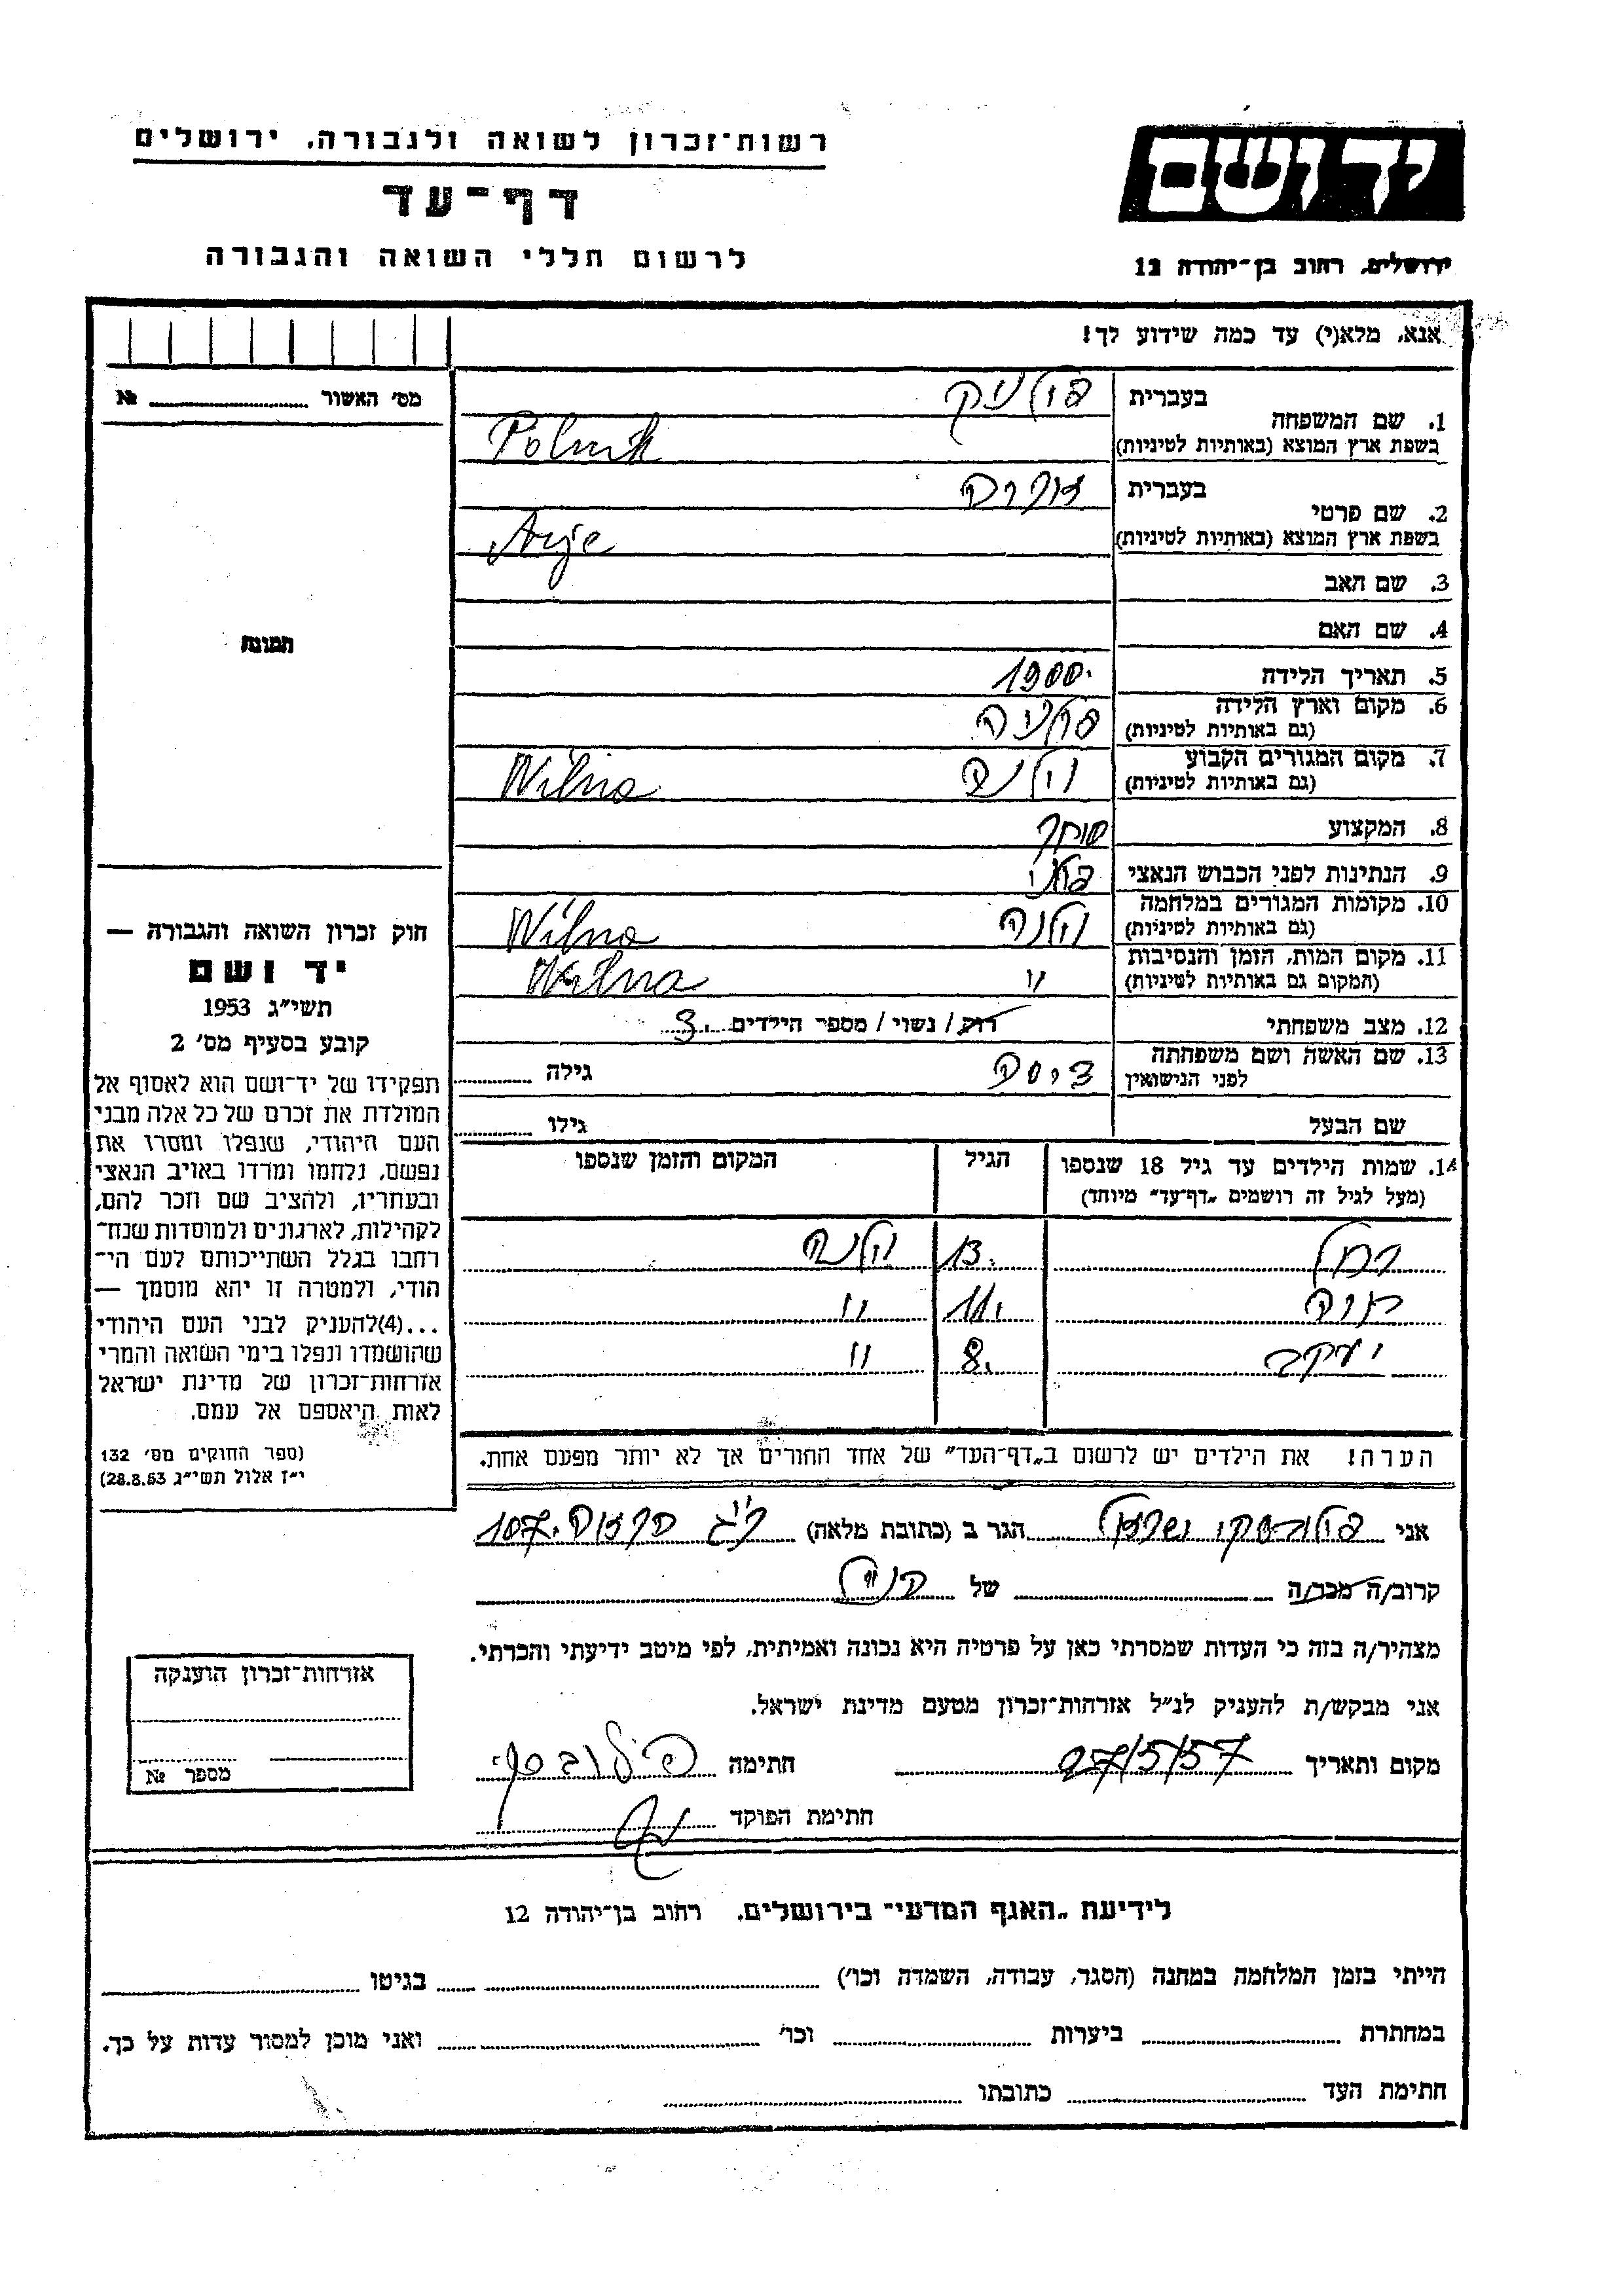 רשות־זכרון לשואה ולגבורה, ירושלים
דף־עד
לרשום חללי השואה והגבורה
יד ושם
ירושלים, רחוב בן־יהודה 12
אנא, מלא(י) עד כמה שידוע לך!
מס׳ האשור № 
תמונה
1. שם המשפחה
בעברית פולניק
בשפת ארץ המוצא (באותיות לטיניות) Polnik
2. שם פרטי
בעברית אריה
בשפת ארץ המוצא (באותיות לטיניות) Arje
3. שם האב
4. שם האם
5. תאריך הלידה 1900.
6. מקום וארץ הלידה
(גם באותיות לטיניות) פולניה
7. מקום המגורים הקבוע
(גם באותיות לטיניות) וילנה Wilna
8. המקצוע סוחר
9. הנתינות לפני הכבוש הנאצי פולני
10. מקומות המגורים במלחמה
(גם באותיות לטיניות) וילנה Wilna
11. מקום המות, הזמן והנסיבות
(המקום גם באותיות לטיניות) " Wilna
12. מצב משפחתי רוק / נשוי / מספר הילדים 3.
13. שם האשה ושם משפחתה
לפני הנישואין גילה
שם הבעל גילו
14. שמות הילדים עד גיל 18 שנספו
(מעל לגיל זה רושמים „דף־עד” מיוחד)
הגיל
המקום והזמן שנספו
רחל 13. וילנה
11. "
יעקב 8. "
הערה! את הילדים יש לרשום ב„דף־העד” של אחד ההורים אך לא יותר מפעם אחת.
חוק זכרון השואה והגבורה —
יד ושם
תשי״ג 1953
קובע בסעיף מס׳ 2
תפקידו של יד־ושם הוא לאסוף אל
המולדת את זכרם של כל אלה מבני
העם היהודי, שנפלו ומסרו את
נפשם, נלחמו ומרדו באויב הנאצי
ובעוזריו, ולהציב שם וזכר להם,
לקהילות, לארגונים ולמוסדות שנח־
רבו בגלל השתייכותם לעם הי־
הודי, ולמטרה זו יהא מוסמך —
...(4)להעניק לבני העם היהודי
שהושמדו ונפלו בימי השואה והמרי
אזרחות־זכרון של מדינת ישראל
לאות היאספם אל עמם.
(ספר החוקים מס׳ 132
י״ז אלול תשי״ג 28.8.53)
אני ישראל הגר ב (כתובת מלאה) 107.
קרוב/ה מכר/ה של הנ״ל
מצהיר/ה בזה כי העדות שמסרתי כאן על פרטיה היא נכונה ואמיתית, לפי מיטב ידיעתי והכרתי.
אני מבקש/ת להעניק לנ״ל אזרחות־זכרון מטעם מדינת ישראל.
מקום ותאריך 27/5/57 חתימה
חתימת הפוקד
אזרחות־זכרון הוענקה
מספר №
לידיעת „האגף המדעי” בירושלים, רחוב בן־יהודה 12
הייתי בזמן המלחמה במחנה (הסגר, עבודה, השמדה וכו׳) בגיטו
במחתרת ביערות וכו׳ ואני מוכן למסור עדות על כך.
חתימת העד כתובתו